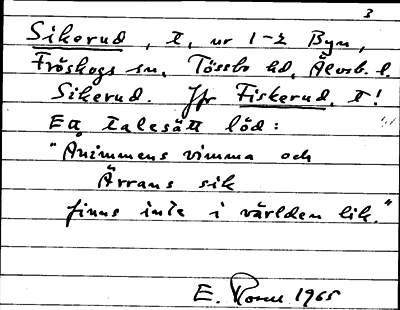 3
Sikerud, t, nr 1-2 Byn,
Fröskogs sn, Tössbo hd, Älvsb. l.
Sikerud. Jfr Fiskerud, t!
Ett talesätt löd:
"Animmens vimma och
Ärrans sik
finns inte i världen lik."
E. 1965